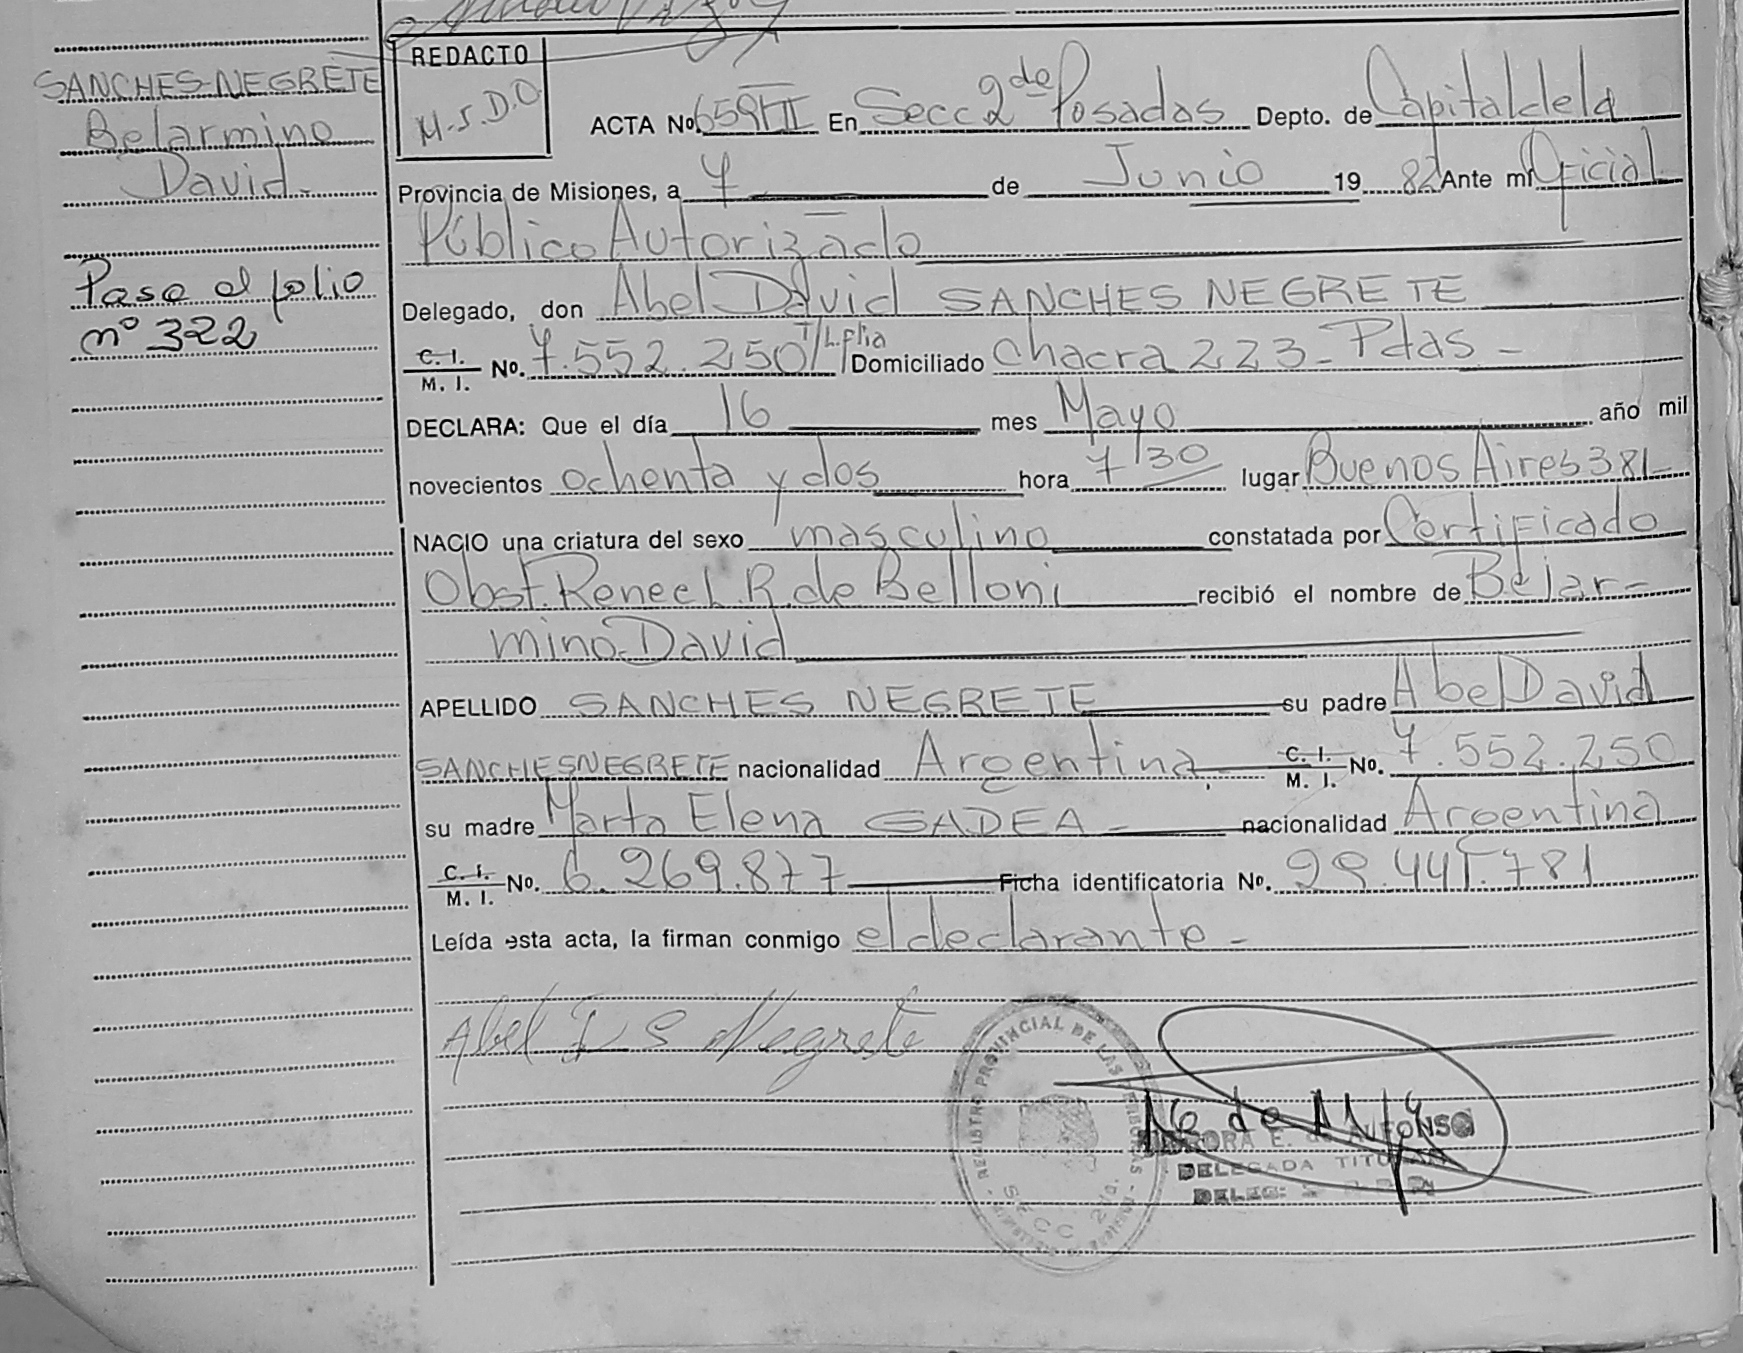 SANCHES NEGRETE
Belarmino
David.-
Pase al folio
nº 322
REDACTO
M.S.D.O.
ACTA No. 659 TII En Secc 2da Posadas Depto. de Capital de la
Provincia de Misiones, a 7 de Junio 19 82 Ante mi Oficial
Público Autorizado
Delegado, don Abel David SANCHES NEGRETE
C. I. M. I. No. 7.552.250 T/L.flia Domiciliado Chacra 223 - Pdas -
DECLARA: Que el día 16 mes Mayo año mil
novecientos ochenta y dos hora 7 30 lugar Buenos Aires 381-
NACIO una criatura del sexo masculino constatada por Certificado
Obst. Renee L. R. de Belloni recibió el nombre de Belar-
mino David
APELLIDO SANCHES NEGRETE su padre Abel David
SANCHES NEGRETE nacionalidad Argentina C. I. M. I. No. 7.552.250
su madre Marta Elena GADEA - nacionalidad Argentina
C. I. M. I. No. 6.269.877 Ficha identificatoria No. 29.441.781
Leída esta acta, la firman conmigo el declarante -
Abel D S Negrete
REGISTRO PROVINCIAL DE LAS PERSONAS
SECC 2da.
E. de ALFONSO
DELEGADA TITULAR